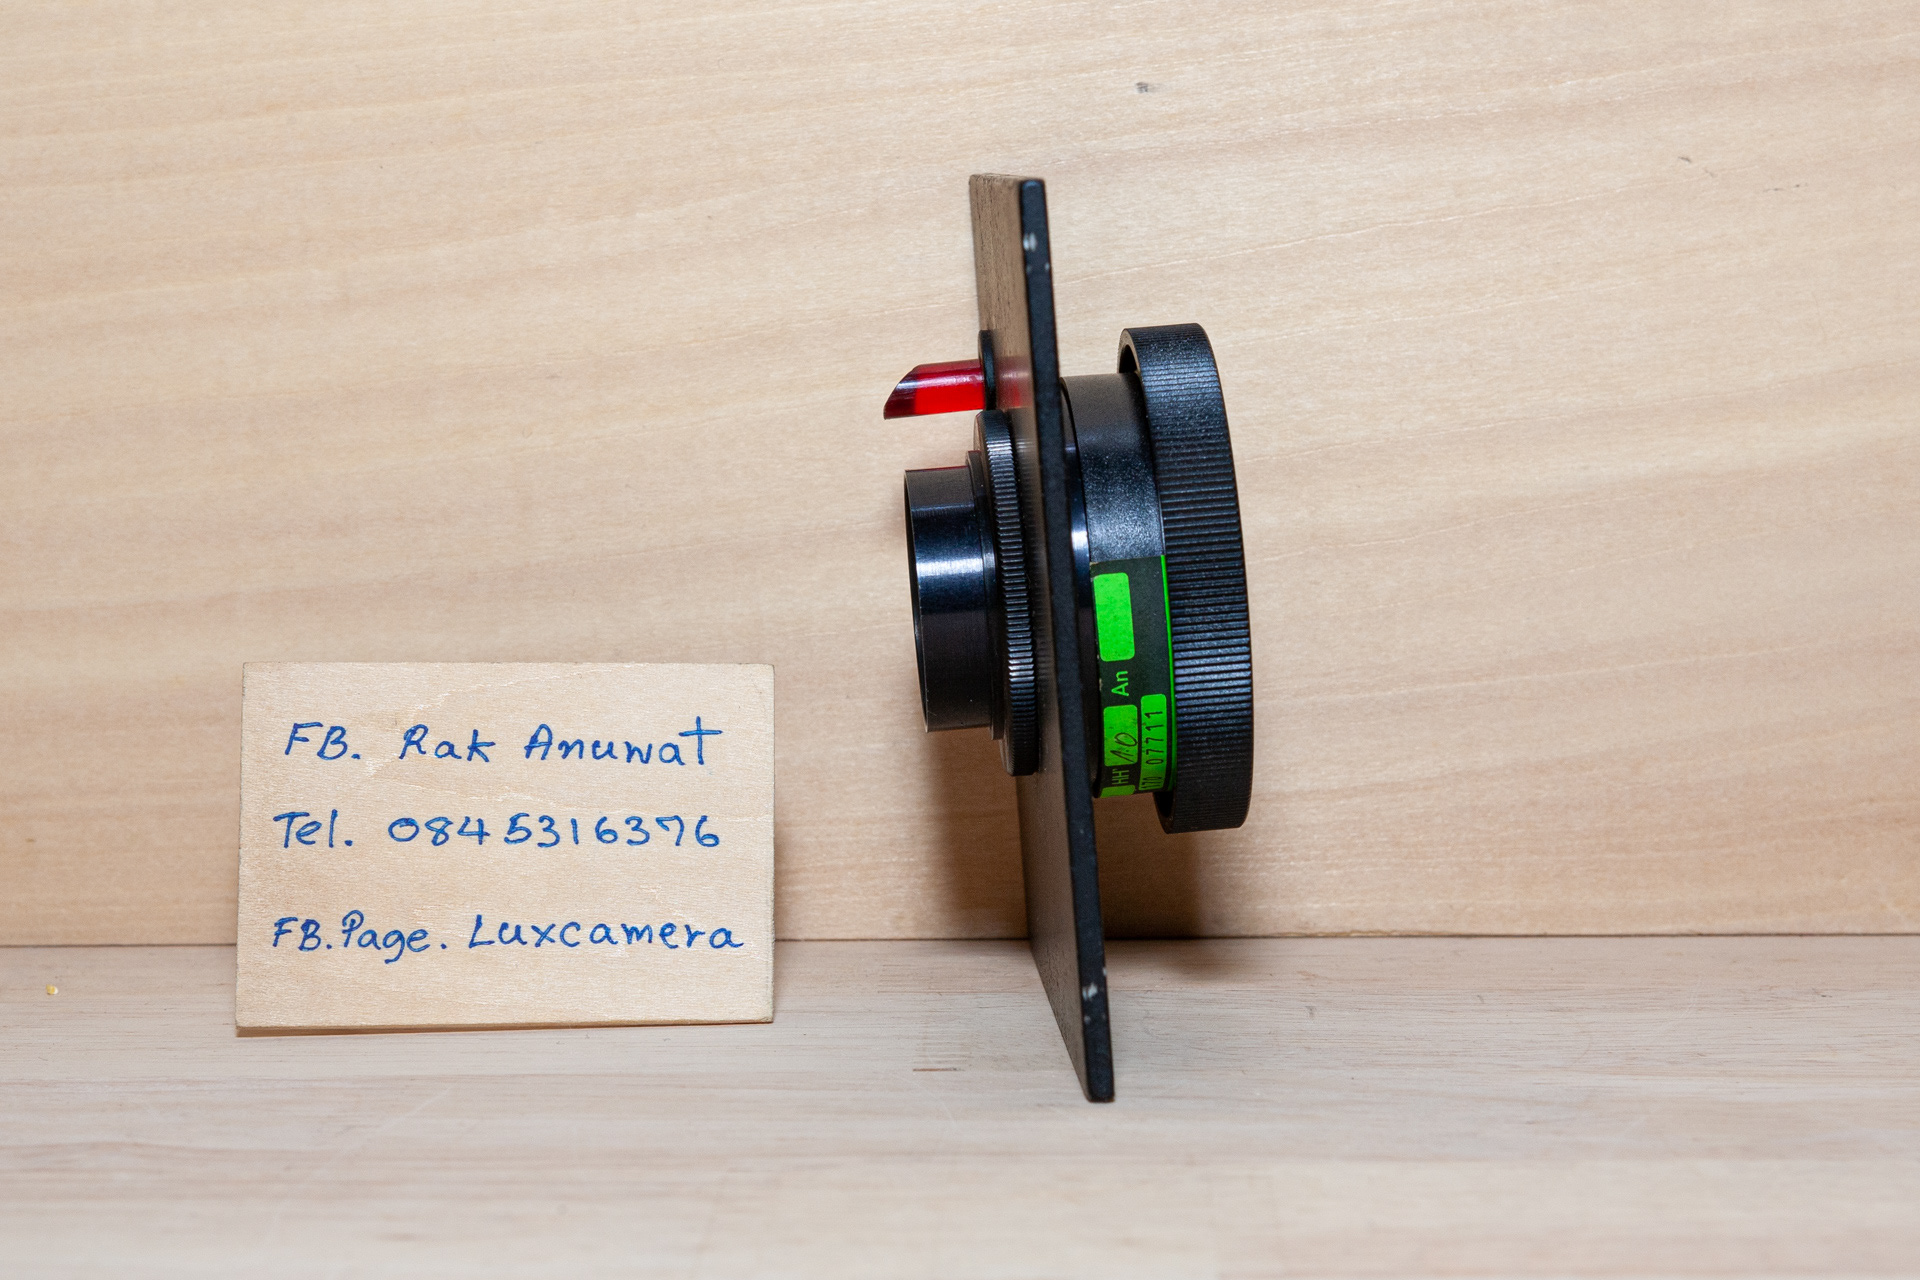 FB. Rak Anuwat
Tel. 0845316376
FB.Page. Luxcamera
An
HH 10
07711